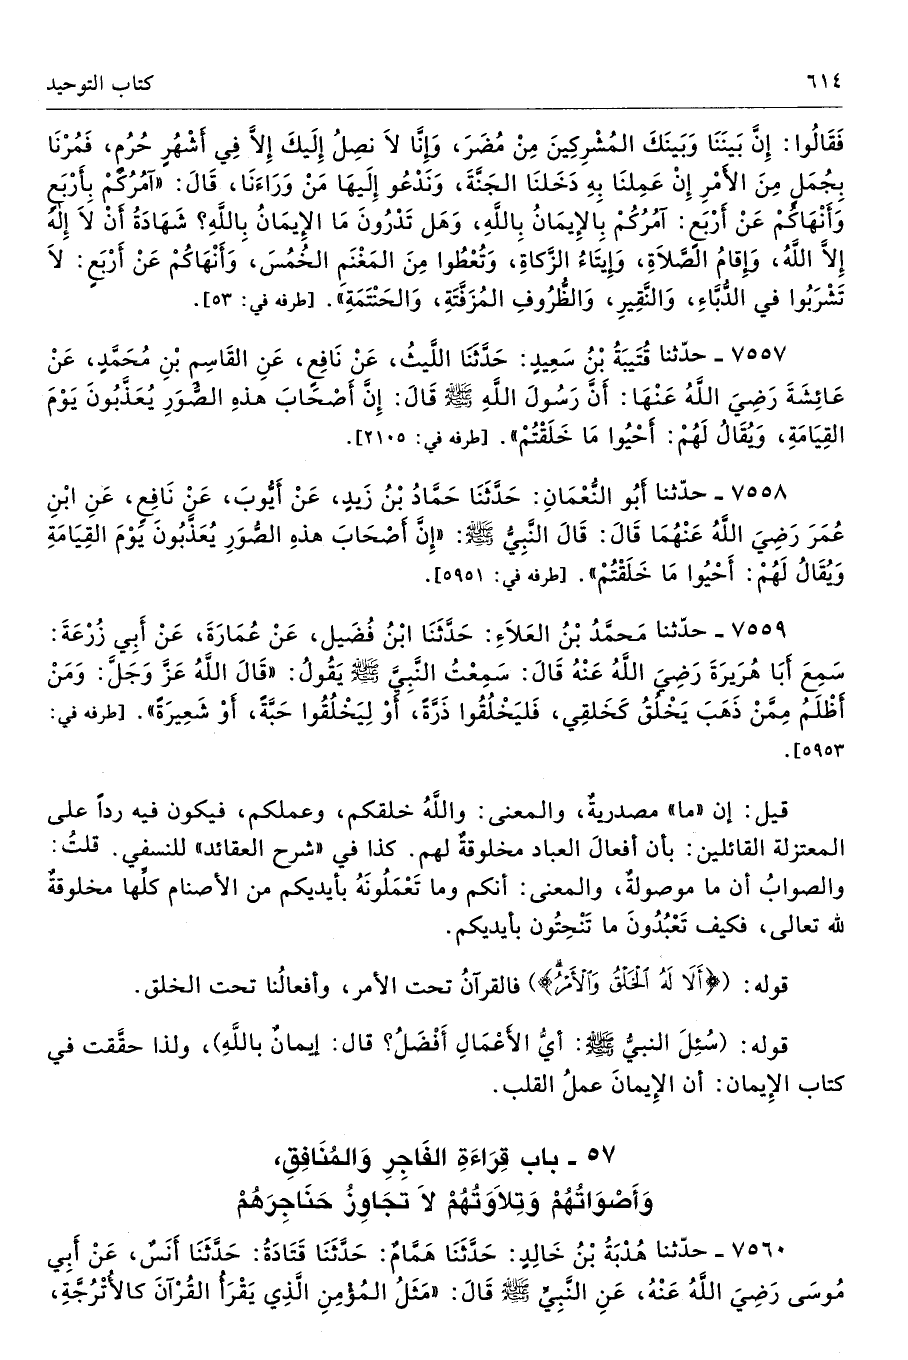 ٦١٤ كتاب التوحيد
فَقَالُوا: إِنَّ بَيْنَنَا وَبَيْنَكَ المُشْرِكِينَ مِنْ مُضَرَ، وَإِنَّا لاَ نَصِلُ إِلَيكَ إِلاَّ فِي أَشْهُرٍ حُرُمٍ، فَمُرْنَا
بِجُمَلٍ مِنَ الأَمْرِ إِنْ عَمِلنَا بِهِ دَخَلنَا الجَنَّةَ، وَنَدْعُو إِلَيهَا مَنْ وَرَاءَنَا، قَالَ: «آمُرُكُمْ بِأَرْبَعٍ
وَأَنْهَاكُمْ عَنْ أَرْبَعٍ: آمُرُكُمْ بِالإِيمَانُ بِاللَّهِ، وَهَل تَدْرُونَ مَا الإِيمَانُ بِاللَّهِ؟ شَهَادَةُ أَنْ لاَ إِلٰهَ
إِلاَّ اللَّهُ، وَإِقامُ الصَّلاَةِ، وَإِيتَاءُ الزَّكاةِ، وَتُعْطُوا مِنَ المَغْنَمِ الخُمُسَ، وَأَنْهَاكُمْ عَنْ أَرْبَعٍ: لاَ
تَشْرَبُوا في الدُّبَّاءِ، وَالنَّقِيرِ، وَالظُّرُوفِ المُزَفَّتَةِ، وَالحَنْتَمَةِ». [طرفه في: ٥٣].
٧٥٥٧ ـ حدّثنا قُتَيبَةُ بْنُ سَعِيدٍ: حَدَّثَنَا اللَّيثُ، عَنْ نَافِعٍ، عَنِ القَاسِمِ بْنِ مُحَمَّدٍ، عَنْ
عَائِشَةَ رَضِيَ اللَّهُ عَنْهَا: أَنَّ رَسُولَ اللَّهِ ﷺ قَالَ: إِنَّ أَصْحَابَ هذهِ الصُّوَرِ يُعَذَّبُونَ يَوْمَ
القِيَامَةِ، وَيُقَالُ لَهُمْ: أَحْيُوا مَا خَلَقْتُمْ». [طرفه في: ٢١٠٥].
٧٥٥٨ ـ حدّثنا أَبُو النُّعْمَانِ: حَدَّثَنَا حَمَّادُ بْنُ زَيدٍ، عَنْ أَيُّوبَ، عَنْ نَافِعٍ، عَنِ ابْنِ
عُمَرَ رَضِيَ اللَّهُ عَنْهُمَا قَالَ: قَالَ النَّبِيُّ ﷺ: «إِنَّ أَصْحَابَ هذهِ الصُّوَرِ يُعَذَّبُونَ يَوْمَ القِيَامَةِ
وَيُقَالُ لَهُمْ: أَحْيُوا مَا خَلَقْتُمْ». [طرفه في: ٥٩٥١].
٧٥٥٩ ـ حدّثنا مُحمَّدُ بْنُ العَلاَءِ: حَدَّثَنَا ابْنُ فُضَيلٍ، عَنْ عُمَارَةَ، عَنْ أَبِي زُرْعَةَ:
سَمِعَ أَبَا هُرَيرَةَ رَضِيَ اللَّهُ عَنْهُ قَالَ: سَمِعْتُ النَّبِيَّ ﷺ يَقُولُ: «قَالَ اللَّهُ عَزَّ وَجَلَّ: وَمَنْ
أَظْلَمُ مِمَّنْ ذَهَبَ يَخْلُقُ كَخَلقِي، فَليَخْلُقُوا ذَرَّةً، أَوْ لِيَخْلُقُوا حَبَّةً، أَوْ شَعِيرَةً». [طرفه في:
٥٩٥٣].
قيل: إن «ما» مصدريةٌ، والمعنى: واللَّهُ خلقكم، وعملكم، فيكون فيه رداً على
المعتزلة القائلين: بأن أفعالَ العباد مخلوقةٌ لهم. كذا في «شرح العقائد» للنسفي. قلتُ:
والصوابُ أن ما موصولةٌ، والمعنى: أنكم وما تَعْمَلُونَهُ بأيديكم من الأصنام كلِّها مخلوقةٌ
لله تعالى، فكيف تَعْبُدُونَ ما تَنْحِتُون بأيديكم.
قوله: (﴿أَلَا لَهُ ٱلْخَلْقُ وَٱلْأَمْرُ﴾) فالقرآنُ تحت الأمر، وأفعالُنا تحت الخلق.
قوله: (سُئِلَ النبيُّ ﷺ: أيُّ الأَعْمَالِ أَفْضَلُ؟ قال: إيمانٌ باللَّهِ)، ولذا حقَّقت في
كتاب الإِيمان: أن الإِيمانَ عملُ القلب.
٥٧ ـ باب قِرَاءَةِ الفَاجِرِ وَالمُنَافِقِ،
وَأَصْوَاتُهُمْ وَتِلاَوَتُهُمْ لاَ تجَاوِزُ حَنَاجِرَهُمْ
٧٥٦٠ ـ حدّثنا هُدْبَةُ بْنُ خَالِدٍ: حَدَّثَنَا هَمَّامٌ: حَدَّثَنَا قَتَادَةُ: حَدَّثَنَا أَنَسٌ، عَنْ أَبِي
مُوسَى رَضِيَ اللَّهُ عَنْهُ، عَنِ النَّبِيِّ ﷺ قَالَ: «مَثَلُ المُؤْمِنِ الَّذِي يَقْرَأُ القُرْآنَ كالأُتْرُجَّةِ،